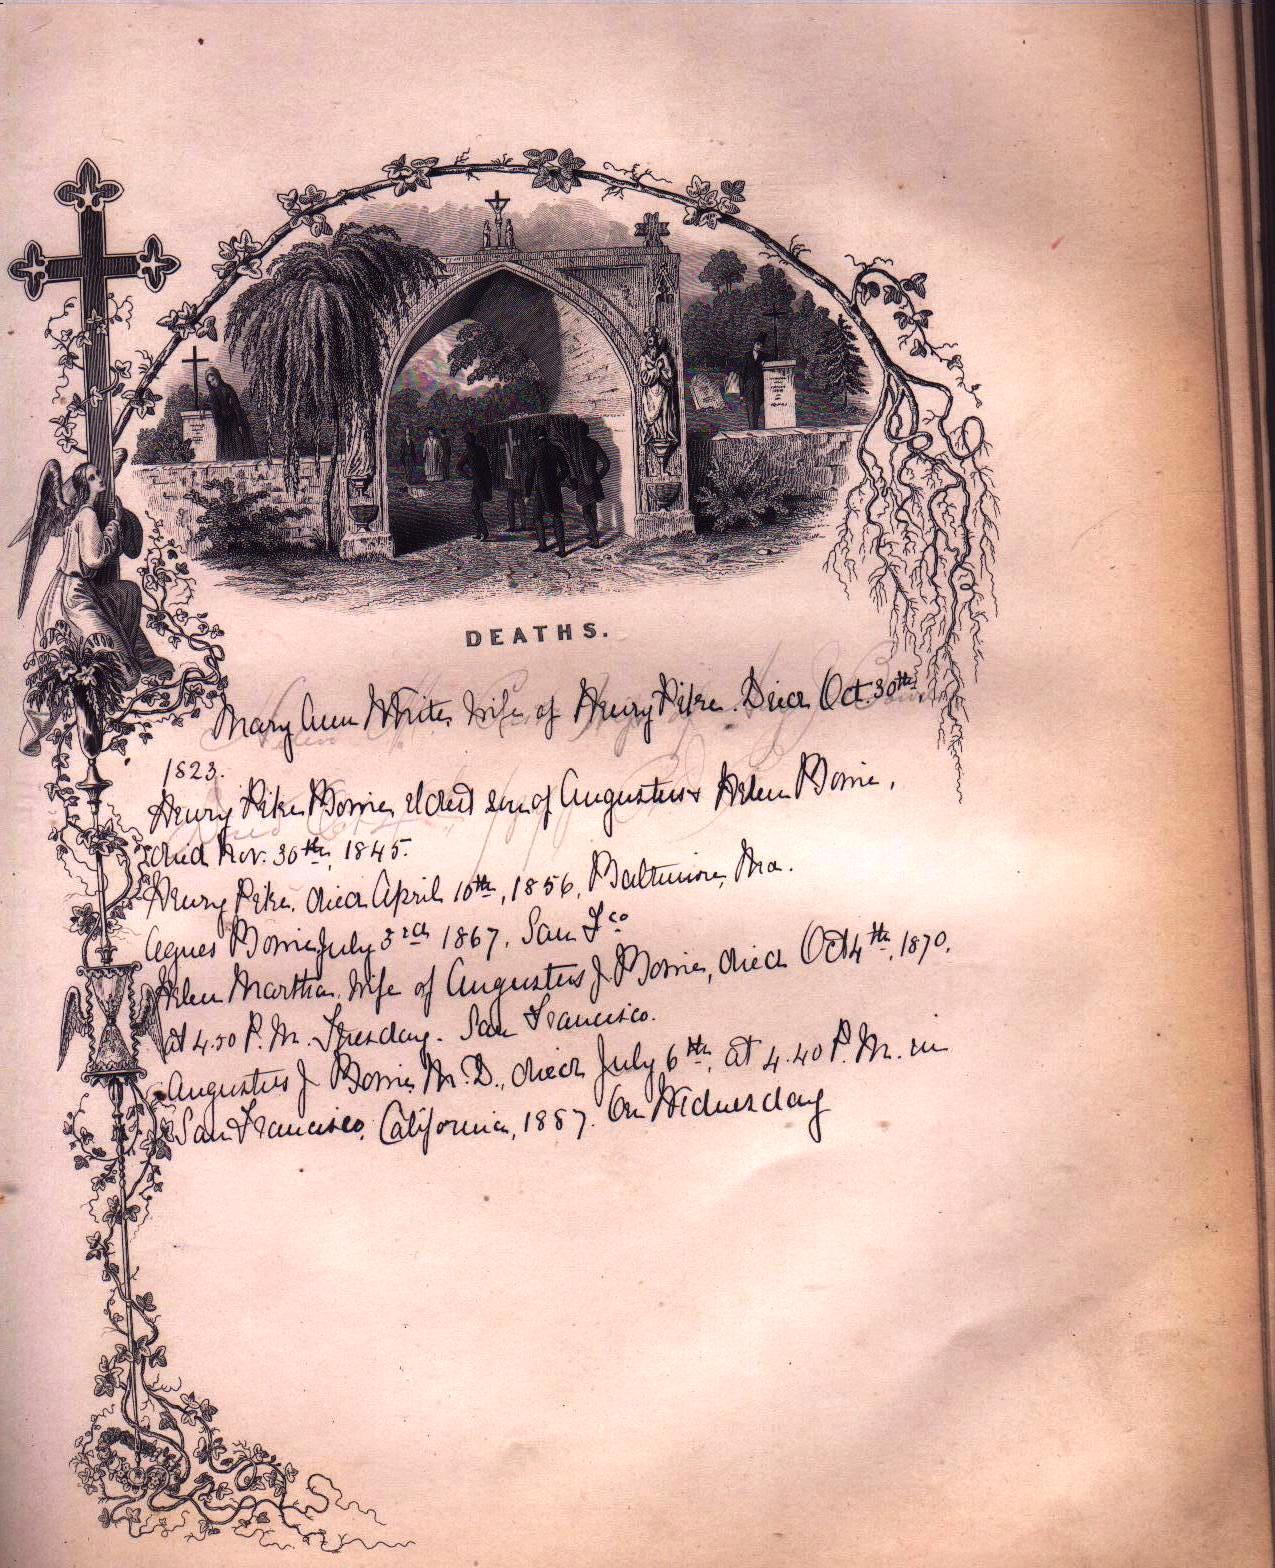 DEATHS.
Mary Ann White, wife of Henry Pike. Died Oct. 30th,
1823.
Henry Pike Bowie, eldest son of Augustus & Helen Bowie,
died Nov. 30th, 1845.
Henry Pike, died April 10th, 1856, Baltimore, Md.
Agnes Bowie, July 3rd 1867. San Fco
Helen Martha, wife of Augustus J Bowie, died Oct 4th, 1870,
at 4.30 P. M. Tuesday. San Francisco.
Augustus J Bowie, M. D., died July 6th, at 4.40 P. M. in
San Francisco, California, 1887. On Wednesday